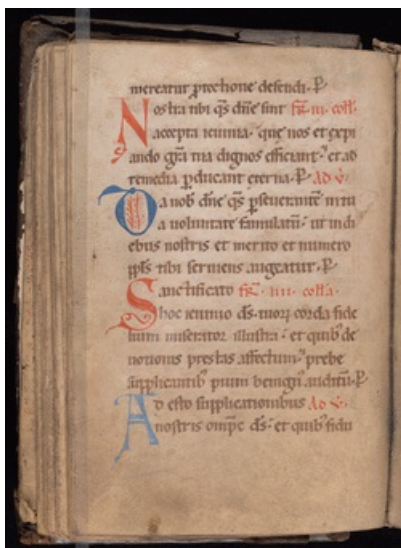 mereatur ꝓtectione defendi· ꝑ
Nostra tibi q̄s dn̄e sint fr̄. iii· coll̄·
accepta ieiunia· que nos et expi
ando gr̄a tua dignos efficiant· et ad
remedia ꝑducant eterna· ꝑ Ad v̄·
Da nob̄ dn̄e q̄s ꝑseuerantē in tu
a uoluntate famulatū· ut in di
ebus nostris et merito et numero
ppl̄s tibi seruiens augeatur· ꝑ
Sanctificato fr̄· iiii· coll̄a·
hoc ieiunio ds̄· tuoꝝ corda fide
lium miserator illustra· et quib' de
uotionis prestas affectum· prebe
supplicantib' pium benign' auditū· ꝑ
Ad esto supplicationibus Ad v̄·
nostris omp̄c ds̄· et quib' fidu